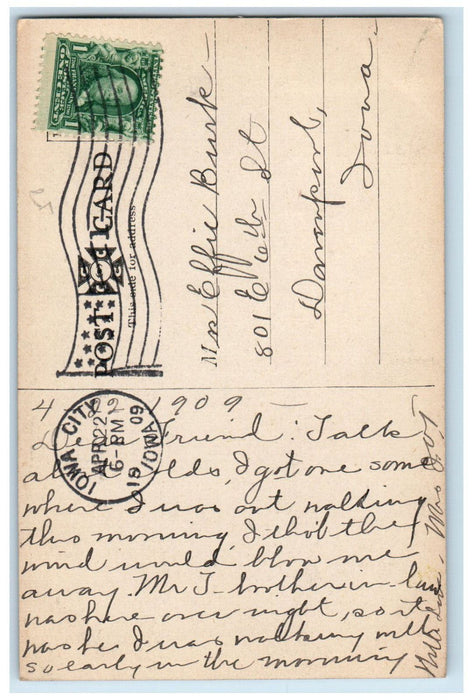 POST CARD
This side for address
1
1
IOWA CITY
APR 22
6-PM
1909
IOWA
Mrs Effie Burk -
801 E 6th St
Davenport,
Iowa.
4 22 1909 -
Dear Friend: Talk
about colds, I got one some
where I was out walking
this morning, I tho't the
wind would blow me
away. Mr J- brother-in-law
was here over night, so it
was he I was walking with
so early in the morning
With Love. Mrs